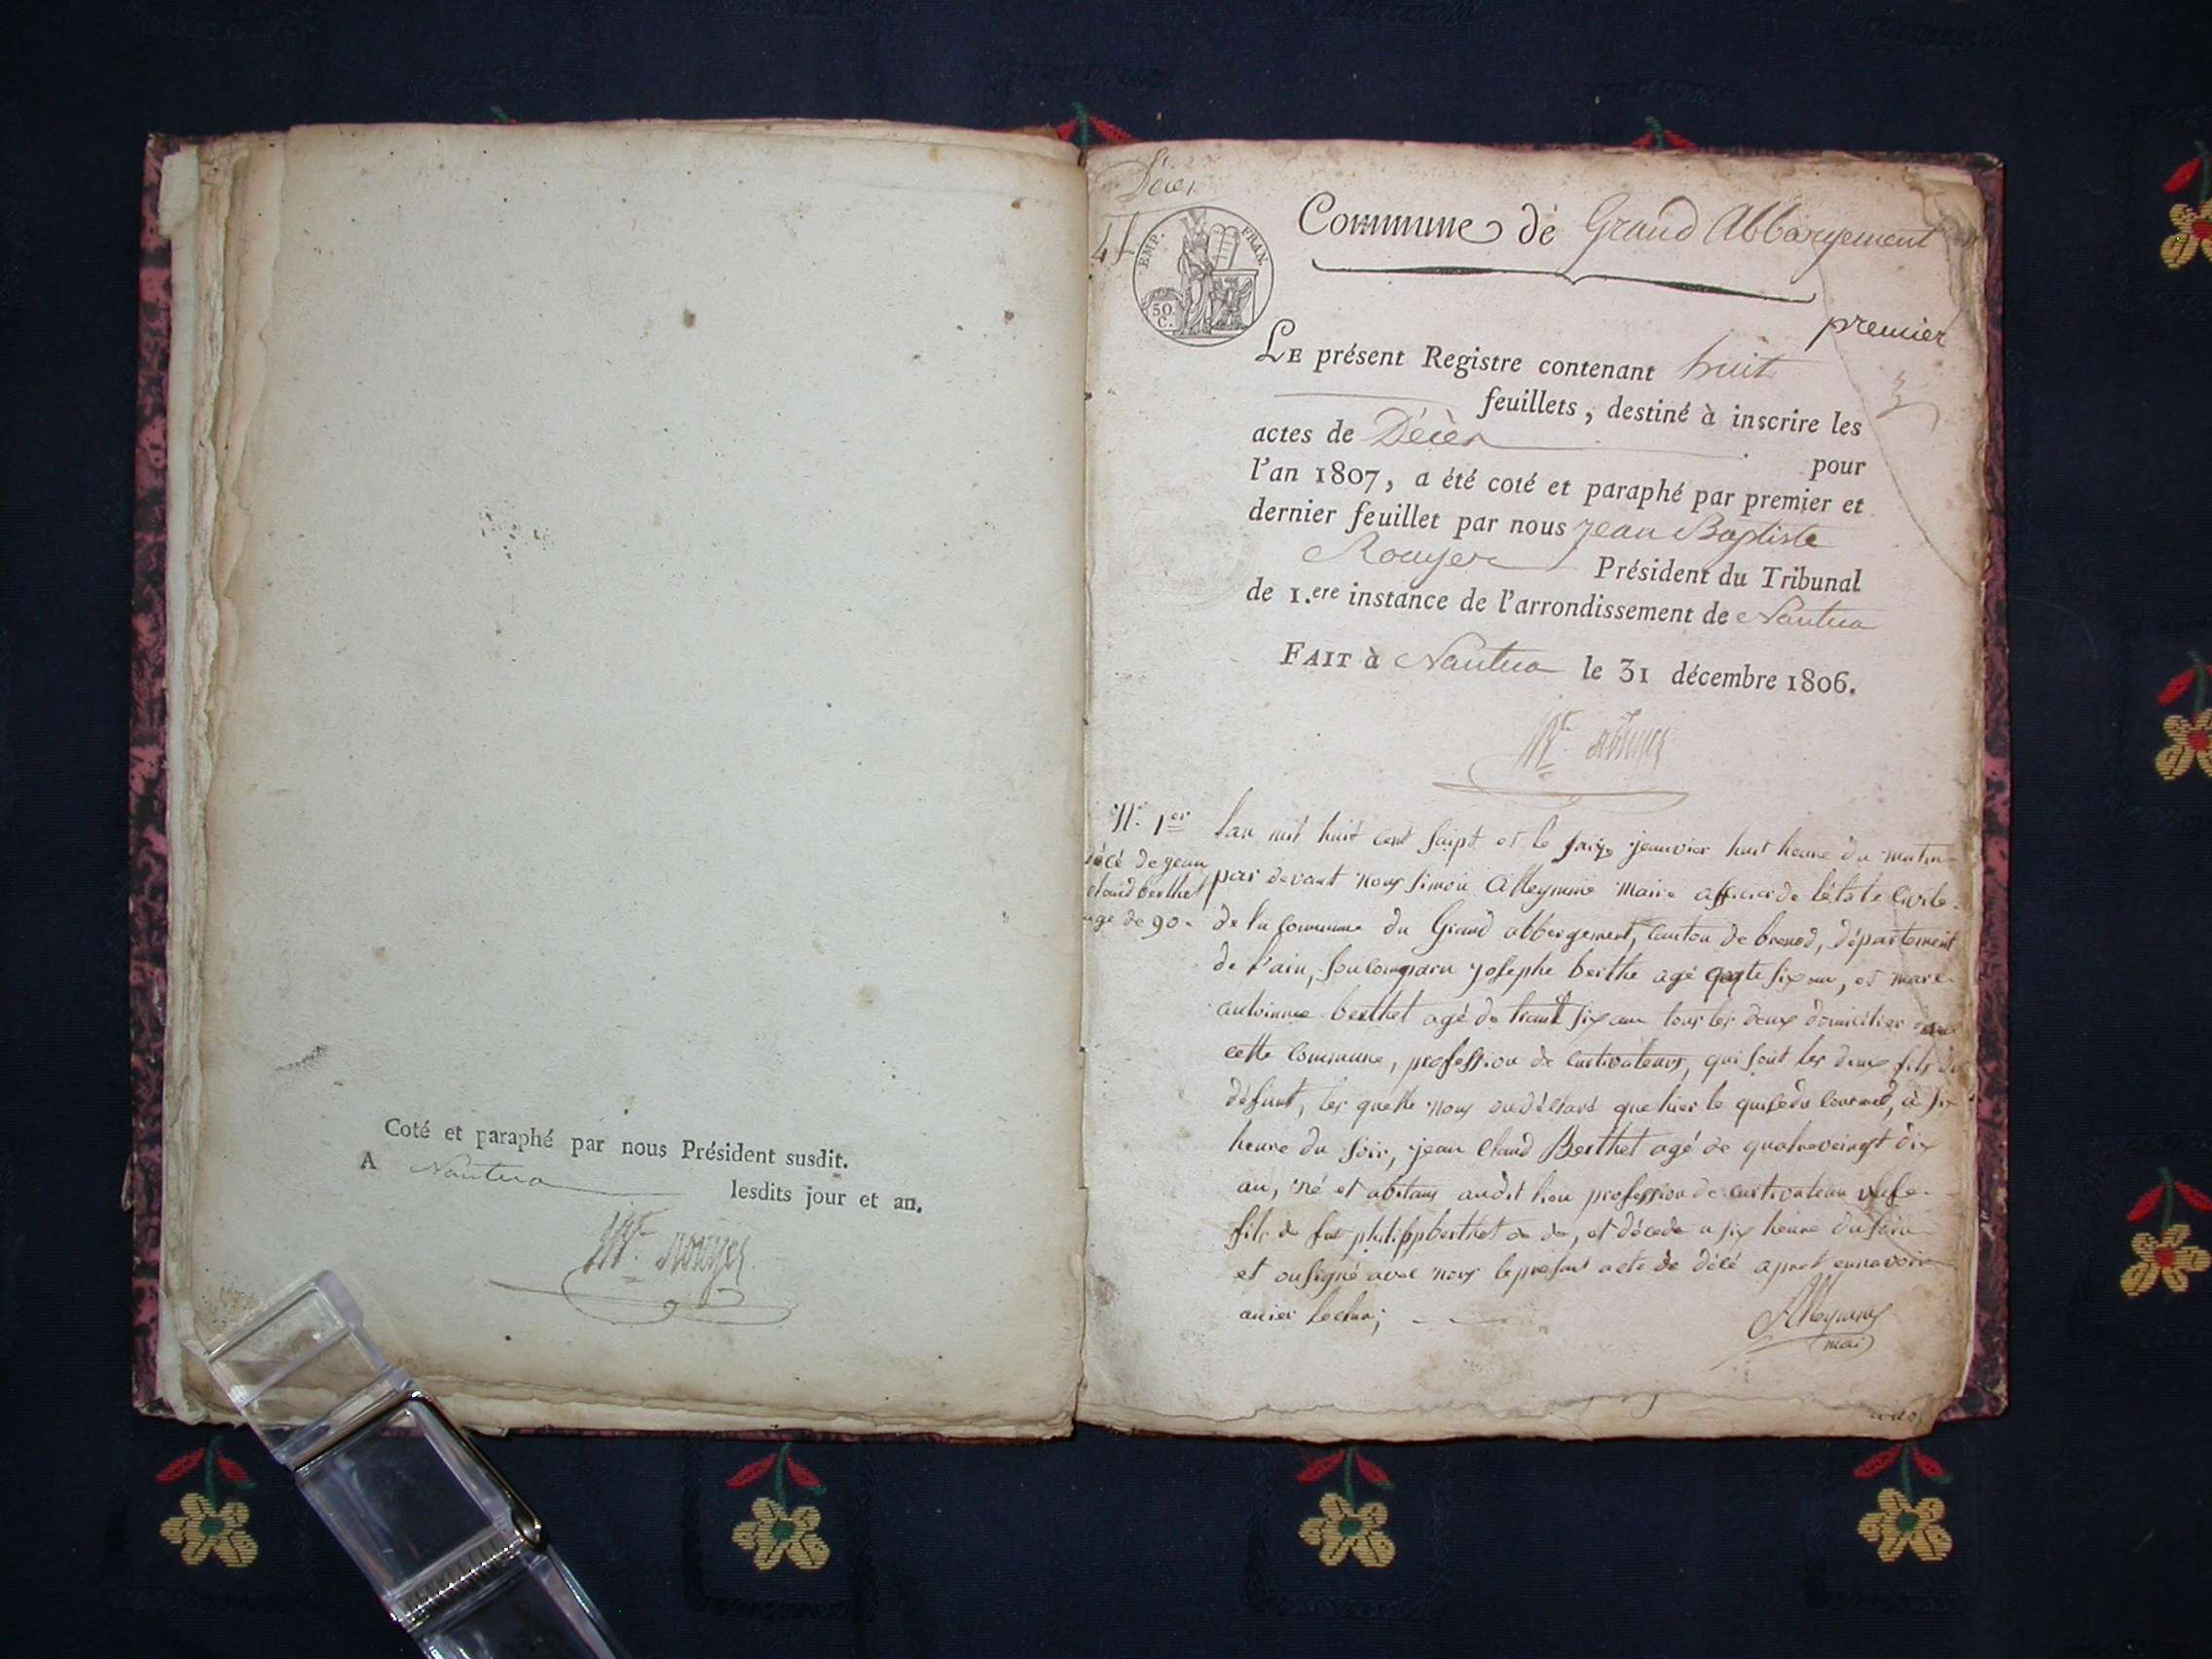 Coté et paraphé par nous Président susdit.
A Nantua lesdits jour et an.
Rouyer
Décès
EMP. FRAN.
50 C.
Commune de Grand Abbargement
premier
LE présent Registre contenant huit
feuillets, destiné à inscrire les
actes de Décès pour
l'an 1807, a été coté et paraphé par premier et
dernier feuillet par nous Jean Baptiste
Rouyer Président du Tribunal
de 1.ere instance de l'arrondissement de Nantua
FAIT à Nantua le 31 décembre 1806.
N.° 1er
décé de jean
claud berthet
age de 90.
Lan mil huit cent saipt et le saize jeanvier huit heure du matin
par devant nous Simon Alleymme Maire officier de l'état civile
de la commune du Grand abbergement, canton de brenod, département
de l'ain, son comparu josephe berthe agé six an, et marc
antoinne berthet agé de trant six an tous les deux domicilier
cette commune, profession de cultivateurs, qui sont les deux fils du
défunt, les quelle nous on déclaré que hier le quinse du courand, à six
heure du soir, jean claud Berthet agé de quatreveingt dix
an, né et abitans audit lieu profession de cultivateur
fils de fue philipp berthet et décede a six heure du soir
et on signé avec nous le présent acte de décé apret ennavoir
lectur;
Alleymme
mair